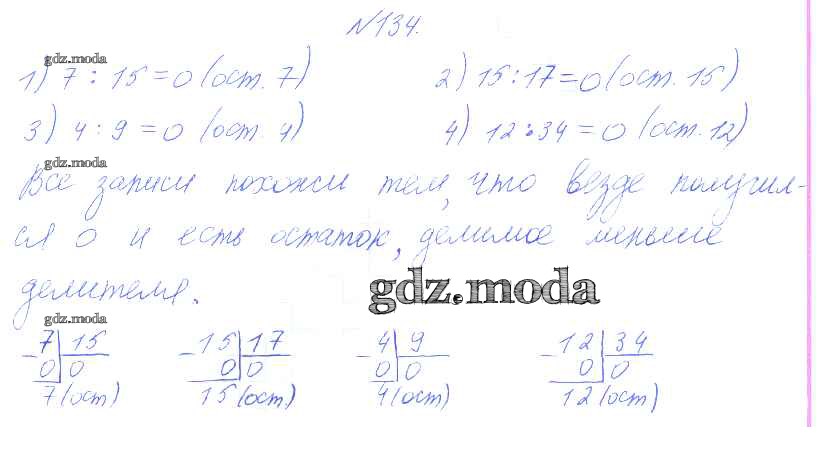 №134.
gdz.moda
1) 7 : 15 = 0 (ост. 7) 2) 15 : 17 = 0 (ост. 15)
3) 4 : 9 = 0 (ост. 4) 4) 12 : 34 = 0 (ост. 12)
gdz.moda
Все записи похожи тем, что везде получил-
ся 0 и есть остаток, делимое меньше
делителя.
gdz.moda
gdz.moda
- 7 | 15 - 15 | 17 - 4 | 9 - 12 | 34
0 | 0 0 | 0 0 | 0 0 | 0
7 (ост) 15 (ост) 4 (ост) 12 (ост)